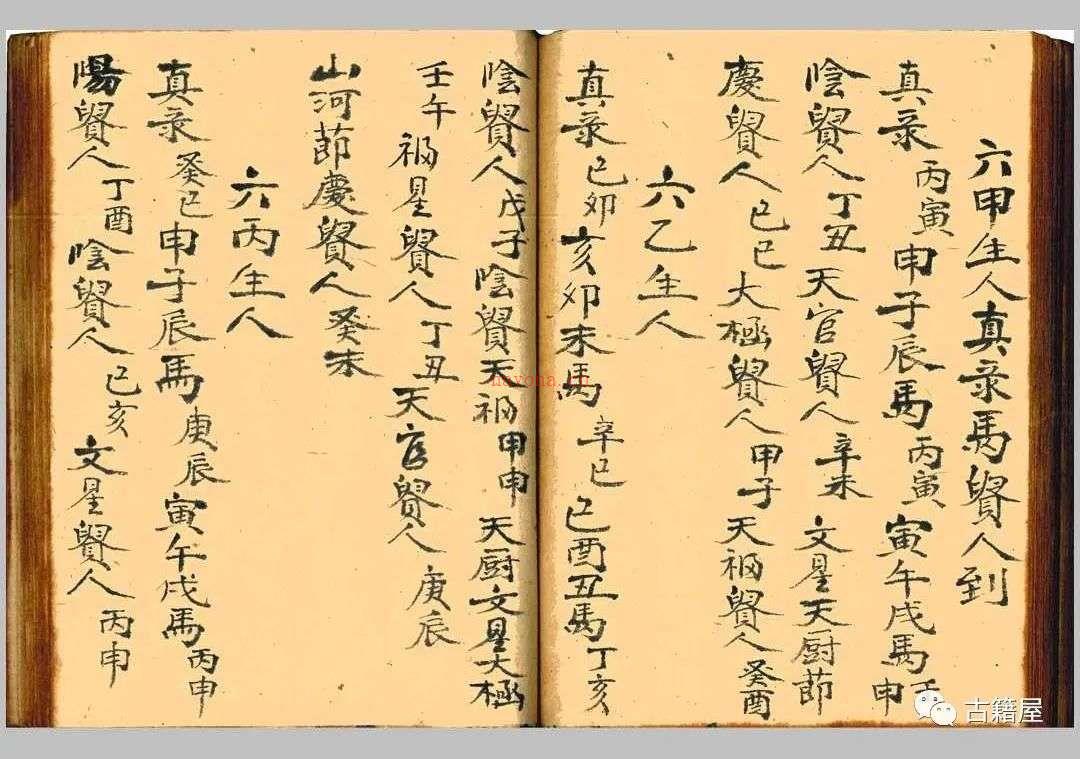 六甲生人真彔馬貿人到
真彔丙寅申子辰馬丙寅寅午戌馬壬申
陰貿人丁丑天官貿人辛未文星天厨節
慶貿人己巳大極貿人甲子天福貿人癸酉
六乙生人
真彔己卯亥卯未馬辛巳巳酉丑馬丁亥
陰貿人戊子陰貿天福甲申天厨文星大極
壬午福星貿人丁丑天官貿人庚辰
山河節慶貿人癸未
六丙生人
真彔癸巳申子辰馬庚辰寅午戌馬丙申
陽貿人丁酉陰貿人己亥文星貿人丙申
古籍屋